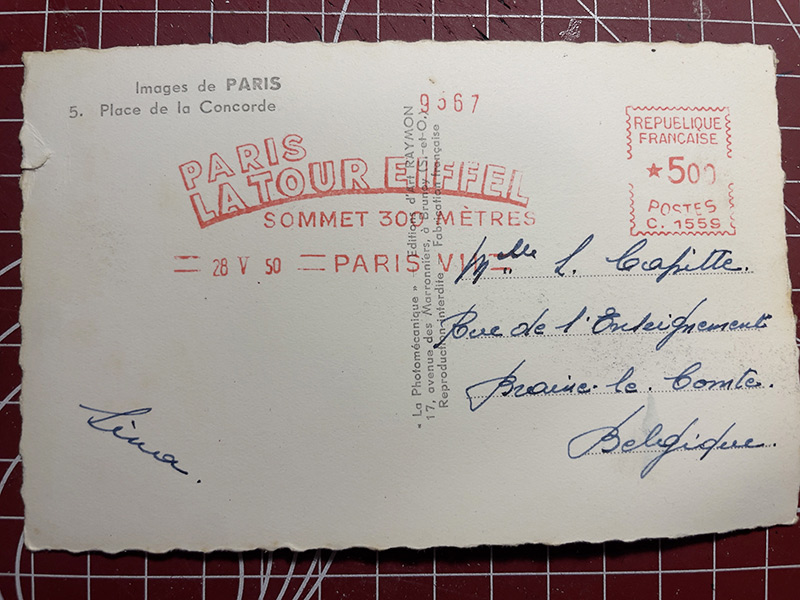 Images de PARIS
5. Place de la Concorde
9567
PARIS
LA TOUR EIFFEL
SOMMET 300 MÈTRES
28 V 50 PARIS VII
REPUBLIQUE
FRANÇAISE
★500
POSTES
C. 1559
« La Photomécanique » Editions d'Art RAYMON
17, avenue des Marronniers, à Brunoy (S.-et-O.)
Reproduction interdite Fabrication française
Melle L. Capitte.
Rue de l'Enseignement
Braine-le-Comte.
Belgique.